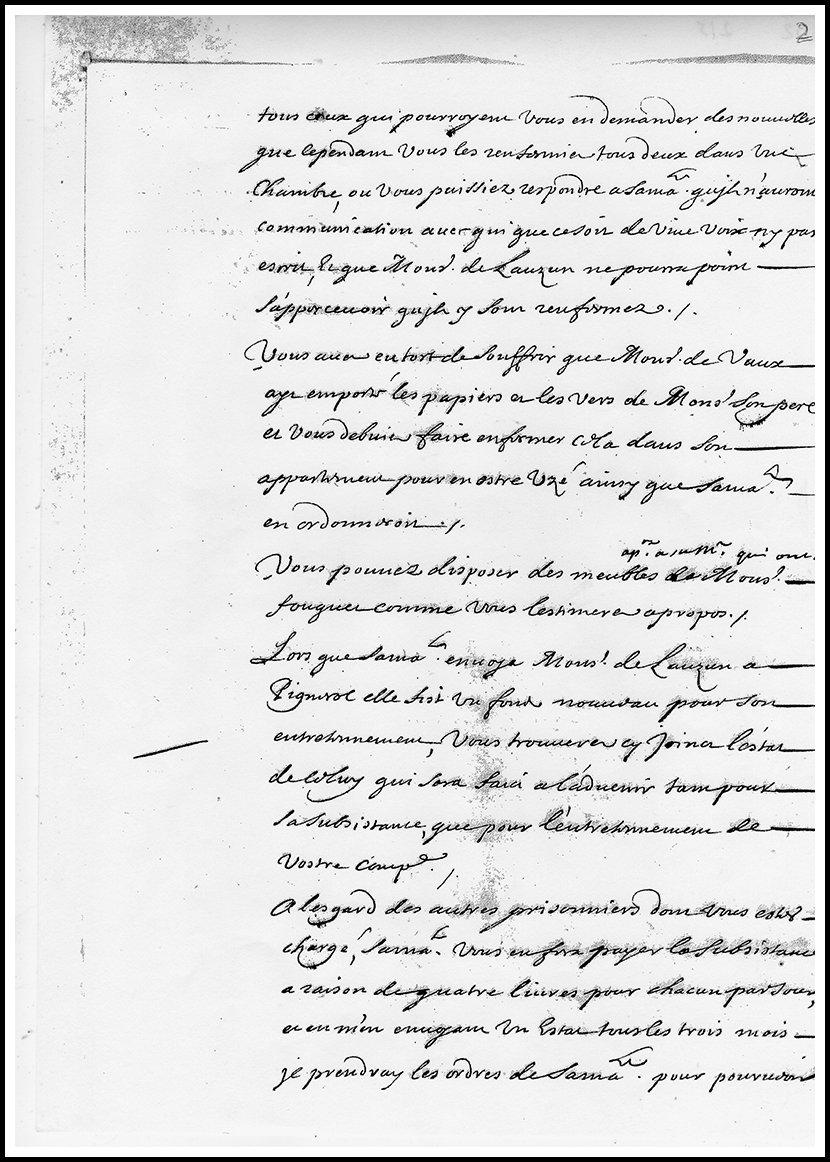 2
tous ceux qui pourroyent Vous en demander des nouvelles
que cependant Vous les renfermiez tous deux dans Une
Chambre, ou Vous puissiez respondre a sama.té qu'ilz n'auront
communication avec qui que ce soit de Vive Voix ny par
escrit, Et que Mons.r de Lauzun ne pourra point
s'appercevoir qu'ilz y sont renfermez ./.
Vous avez eu tort de souffrir que Mons.r de Vaux
ayt emporté les papiers et les vers de Mons.r Son pere
et Vous debviez faire enfermer cela dans son
appartement pour en estre Uzé ainsy que sama.té
en ordonneroit ./.
ap.nt a sa M.té qui ont
Vous pouvez disposer des meubles de Mons.r
fouquet comme Vous l'estimerez apropos ./.
Lors que sama.té envoya Mons.r de Lauzun a
Pignerol elle fist Un fond nouveau pour son
entretennement, Vous trouverez cy Joinct l'estat
de celuy qui sera faict a l'advenir tant pour
sa subsistance, que pour l'entretennement de
Vostre comp.e ./.
A l'esgard des autres prisonniers dont Vous estes
chargé, sama.té Vous en fera payer la subsistance
a raison de quatre livres pour chacun par Jour,
et en m'en envoyant Un Estat tous les trois mois
je prendray les ordres de sama.té pour pourvoir